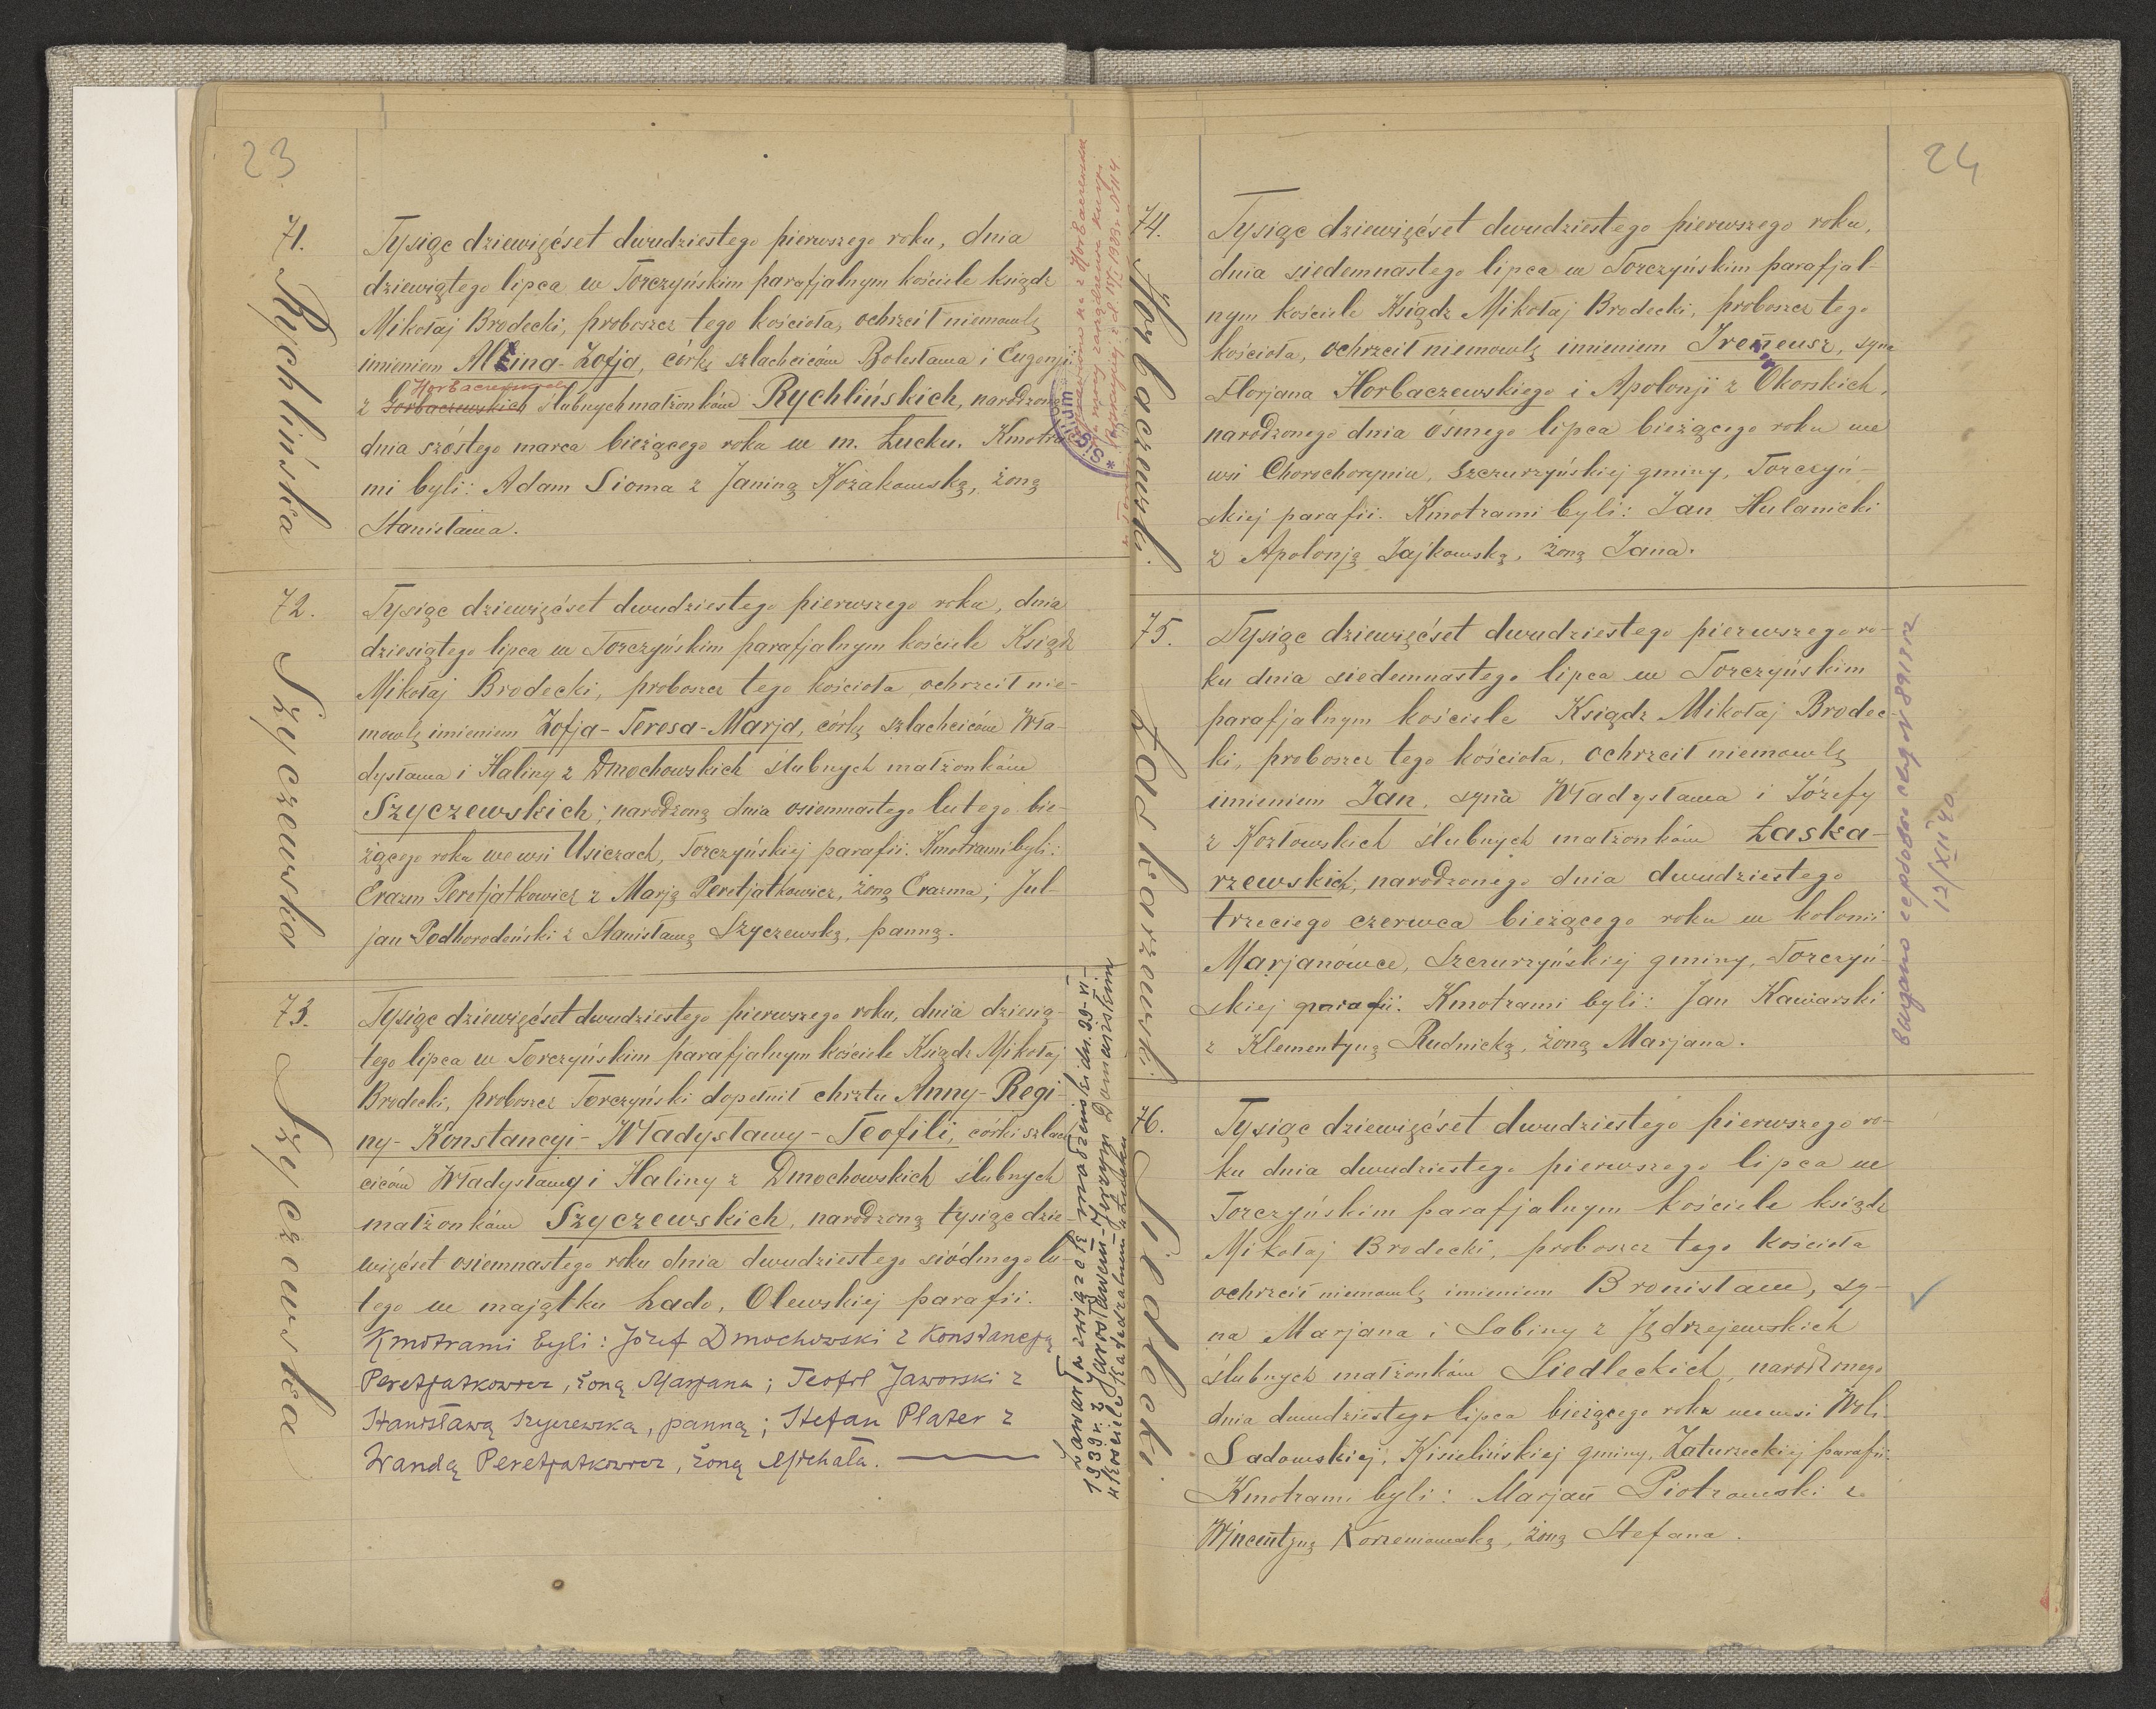 23
71.
Rychlińska
Tysiąc dziewięćset dwudziestego pierwszego roku, dnia
dziewiątego lipca w Torczyńskim parafjalnym kościele ksiądz
Mikołaj Brodecki, proboszcz tego kościoła, ochrzcił niemowlę
imieniem Alina-Zofja, córkę szlachciców Bolesława i Eugenji
Horbaczewskich
z Gorbaczewskich ślubnych małżonków Rychlińskich, narodzoną
dnia szóstego marca bieżącego roku w m. Łucku. Kmotra-
mi byli: Adam Sioma z Janiną Kożakowską, żoną
Stanisława.
Horbaczewska
72.
Szyczewska
Tysiąc dziewięćset dwudziestego pierwszego roku, dnia
dziesiątego lipca w Torczyńskim parafjalnym kościele Ksiądz
Mikołaj Brodecki, proboszcz tego kościoła ochrzcił nie-
mowlę imieniem Zofja-Teresa-Marja, córkę szlachciców Wła-
dysława i Haliny z Dmochowskich ślubnych małżonków
Szyczewskich; narodzoną dnia osiemnastego lutego bie-
żącego roku we wsi Usiczach, Torczyńskiej parafii. Kmotrami byli:
Erazm Peretjatkowicz z Marją Peretjatkowicz, żoną Erazma; Jul-
jan Podhorodeński z Stanisławą Szyczewską, panną.
73.
Szyczewska
Tysiąc dziewięćset dwudziestego pierwszego roku, dnia dziesią-
tego lipca w Torczyńskim parafjalnym kościele Ksiądz Mikołaj
Brodecki, proboszcz Torczyński dopełnił chrztu Anny-Regi-
ny-Konstancyi-Władysławy-Teofili, córki szlach-
ciców Władysława i Haliny z Dmochowskich ślubnych
małżonków Szyczewskich, narodzoną tysiąc dzie-
więćset osiemnastego roku dnia dwudziestego siódmego lu-
tego w majątku Łado, Olewskiej parafii.
Kmotrami byli: Józef Dmochowski z Konstancją
Peretjatkowicz, żoną Marjana; Teofil Jaworski z
Stanisławą Szyczewską, panną; Stefan Plater z
Wandą Peretjatkowicz, żoną Michała.
Zawarła związek małżeński dn. 29-VI-
1939 r. z Jarosławem-Jerzym Domańskim
w kościele katedralnym w Łucku
24
74.
Horbaczewski.
Tysiąc dziewięćset dwudziestego pierwszego roku,
dnia siedemnastego lipca w Torczyńskim parafjal-
nym kościele Ksiądz Mikołaj Brodecki, proboszcz tego
kościoła, ochrzcił niemowlę imieniem Ireneusz, syna
Florjana Horbaczewskiego i Apolonji z Okorskich,
narodzonego dnia ósmego lipca bieżącego roku we
wsi Chorochoryniu, Szczurzyńskiej gminy, Torczyń-
skiej parafii. Kmotrami byli: Jan Hulanicki
z Apolonją Jajkowską, żoną Jana.
75.
Łaskarzewski.
Tysiąc dziewięćset dwudziestego pierwszego ro-
ku dnia siedemnastego lipca w Torczyńskim
parafjalnym kościele Ksiądz Mikołaj Brodec-
ki, proboszcz tego kościoła, ochrzcił niemowlę
imieniem Jan, syna Władysława i Józefy
z Kozłowskich ślubnych małżonków Łaska-
rzewskich, narodzonego dnia dwudziestego
trzeciego czerwca bieżącego roku w kolonii
Marjanówce, Szczurzyńskiej gminy, Torczyń-
skiej parafii. Kmotrami byli: Jan Kawarski
z Klementyną Rudnicką, żoną Marjana.
12/XII 40
76.
Siedlecki.
Tysiąc dziewięćset dwudziestego pierwszego ro-
ku dnia dwudziestego pierwszego lipca w
Torczyńskim parafjalnym kościele ksiądz
Mikołaj Brodecki, proboszcz tego kościoła
ochrzcił niemowlę imieniem Bronisław, sy-
na Marjana i Sabiny z Jędrzejewskich
ślubnych małżonków Siedleckich, narodzonego
dnia dwudziestego lipca bieżącego roku we wsi Woli-
Sadowskiej, Kisielińskiej gminy, Zaturzeckiej parafii.
Kmotrami byli: Marjan Piotrowski z
Wincentyną Korzeniowską, żoną Stefana.